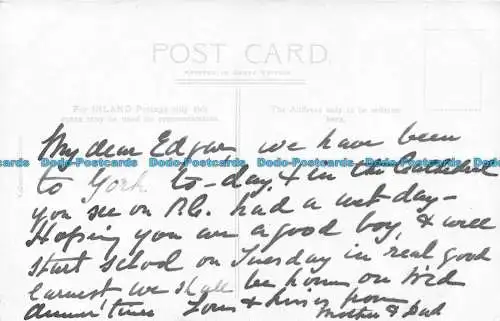 POST CARD
For INLAND Postage only this space may be used for correspondence.
The Address only to be written here.
My dear Edgar we have been
to York to-day, & in the Cathedral
you see on P.C. had a wet day-
Hoping you are a good boy, & will
start school on Tuesday in real good
earnest we shall be home on Wed
dinner time Love & kisses from
Mother & Dad
Dodo-Postcards Dodo-Postcards Dodo-Postcards Dodo-Postcards Dodo-Postcards